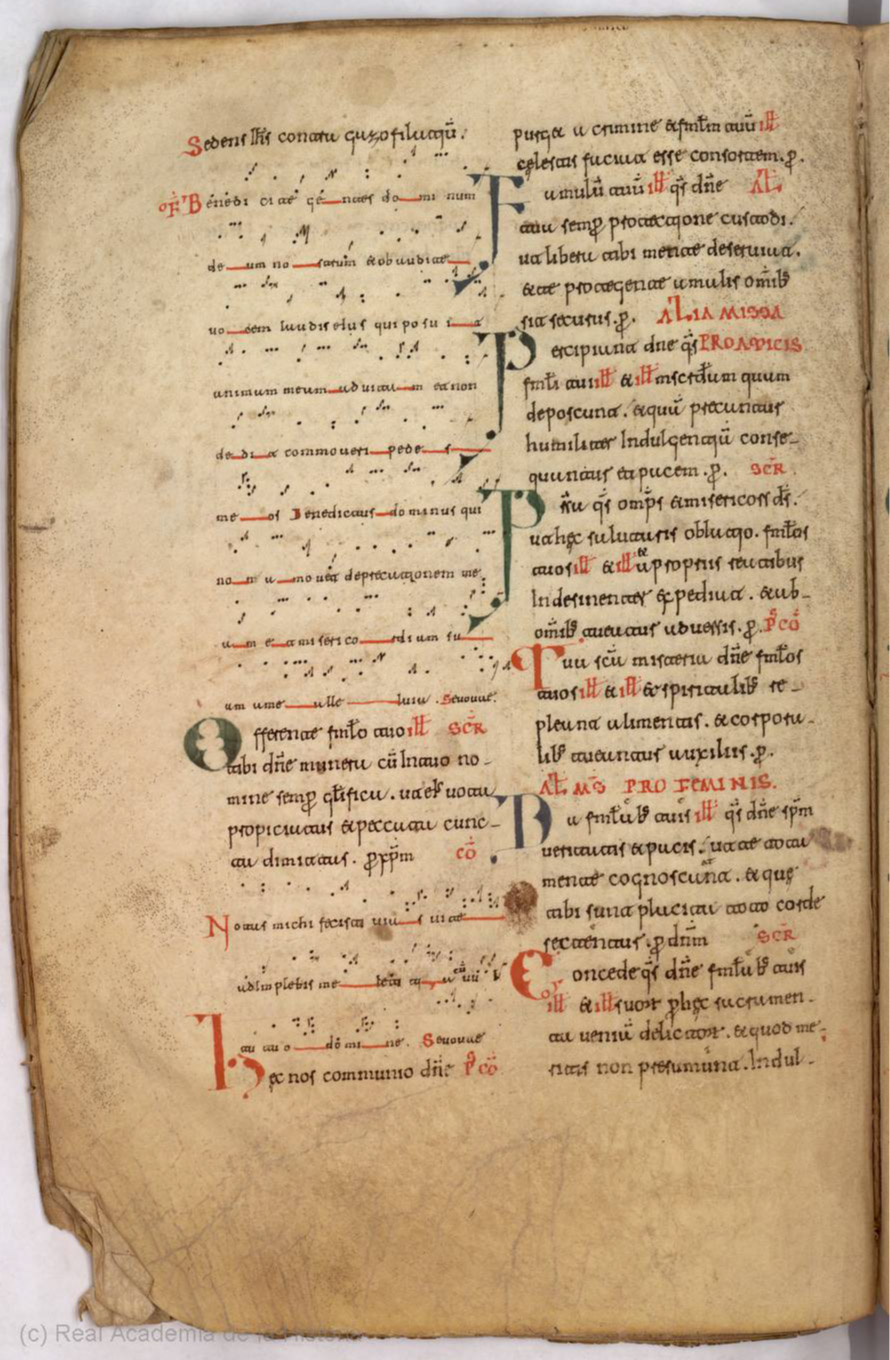 Sedens ihs contra gazofilatiū.
OF Benedi ci te ge ntes do mi num
de um no strum et obaudite
uo cem laudis eius qui posu i t
animam meam ad uita m et non
de di t commoueri pede s
me os Benedictus dominus qui
no n a mo uit deprecationem me
a m et misericordi am su
am a me alle luia . Seuouae.
Offerente fmło tuo ill SCR
tibi dñe munera cū In tuo no
mine semꝑ glifica . ut eis uota
propiciatus et peccata cunc
ta dimittas . ꝑ xp̄m CŌ
Notas michi fecisti uia s uite
adimplebis me letitia cum uu
l tu tu o do mi ne . Seuouae
Hęc nos communio dñe PCŌ
purget a crimine et fmłm tuū ill
cęlestis faciat esse consortem . ꝑ .
Famulū tuū ill qs dñe AL
tua semꝑ protectione custodi .
ut libera tibi mente deseruiat .
et te protegente a malis omīb
sit securus . ꝑ . ALIA MISSA
Percipiant dne qs PRO AMICIS
fmłi tui ill et ill mscd̄iam quam
deposcunt . et quā precantur
humiliter Indulgentiā conse
quantur et pacem . ꝑ . SCR
Prsta qs omp̄s et misericors ds .
ut hęc salutaris oblatio . fmłos
tuos ill et ill et a propriis reatibus
Indesinenter expediat . et ab
omīb tueatur aduersis . ꝑ . PCŌ
Tua scā misteria dñe fmłos
tuos ill et ill et spiritalib re
pleant alimentis . et corpora
lib tueantur auxiliis . ꝑ .
AL MS PRO FEMINIS .
Da fmłab tuis ill qs dñe spm
ueritatis et pacis . ut te tota
mente cognoscant . et quę
tibi sunt placita toto corde
sectentur . ꝑ dnm SCR
Concede qs dñe fmłab tuis
ill et ill suor ꝑ hęc sacramen
ta ueniā delictor . et quod me
ritis non presumunt . Indul
(c) Real Academia de la Historia